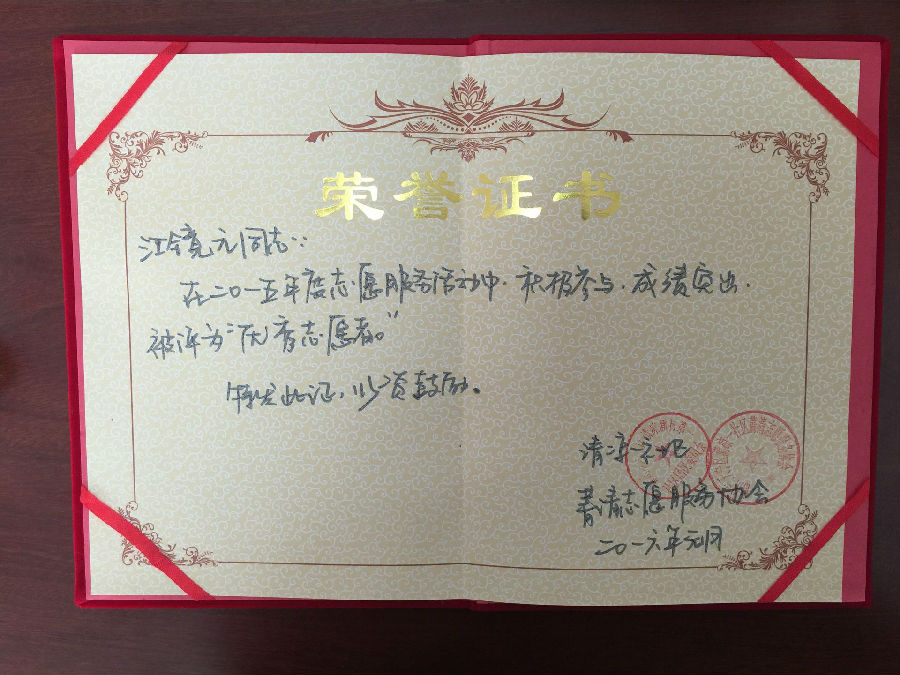 荣誉证书
江镜元同志：
在二〇一五年度志愿服务活动中，积极参与，成绩突出，
被评为“优秀志愿者。”
特发此证，以资鼓励。
清凉一社
菁清志愿服务协会
二〇一六年元月